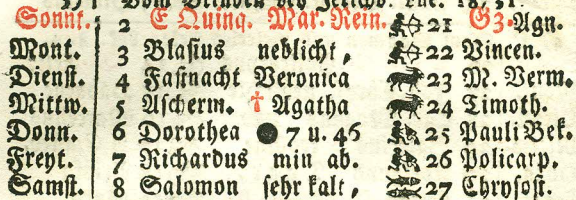 Sonnt. 2 E Quinq. Mar. Rein. 21 G3. Agn.
Mont. 3 Blasius neblicht, 22 Vincen.
Dienst. 4 Fastnacht Veronica 23 M. Verm.
Mittw. 5 Ascherm. † Agatha 24 Timoth.
Donn. 6 Dorothea ● 7 u. 46 25 Pauli Bek.
Freyt. 7 Richardus min ab. 26 Policarp.
Samst. 8 Salomon sehr kalt, 27 Chrysost.